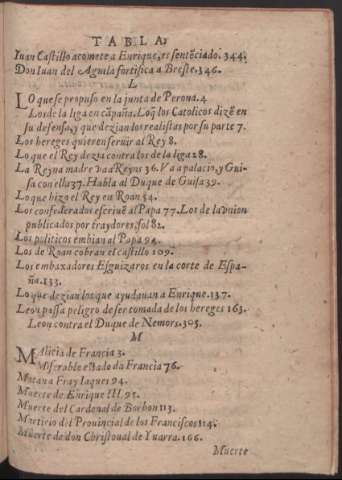 TABLA,
Iuan Castillo acomete a Enrique, es sentẽciado. 344.
Don Iuan del Aguila fortifica a Breste. 346.
L
LO que se propuso en la junta de Perona. 4
Los de la liga en cãpaña. Loq̃ los Catolicos dizẽ en
su defensa, y que dezian los realistas por su parte 7.
Los hereges quieren seruir al Rey 8.
Lo que el Rey dezia contra los de la liga 28.
La Reyna madre va a Reyns 36. Va a palacio, y Gui-
sa con ella 37. Habla al Duque de Guisa 39.
Lo que hizo el Rey en Roan 54.
Los confederados escriuẽ al Papa 77. Los de la vnion
publicados por traydores, fol 82.
Los politicos embian al Papa 94.
Los de Roan cobran el castillo 109.
Los embaxadores Esguizaros en la corte de Espa-
ña. 133.
Lo que dezian los que ayudauan a Enrique. 137.
Leon passa peligro de ser tomada de los hereges 163.
Leon contra el Duque de Nemors. 305.
M
MAlicia de Francia 3.
Miserable estado da Francia 76.
Matan a Fray Iaques 94.
Muerte de Enrique III. 95.
Muerte del Cardenal de Borbon 113.
Martirio del Prouincial de los Franciscos 114.
Muerte de don Christoual de Yuarra. 166.
Muerte